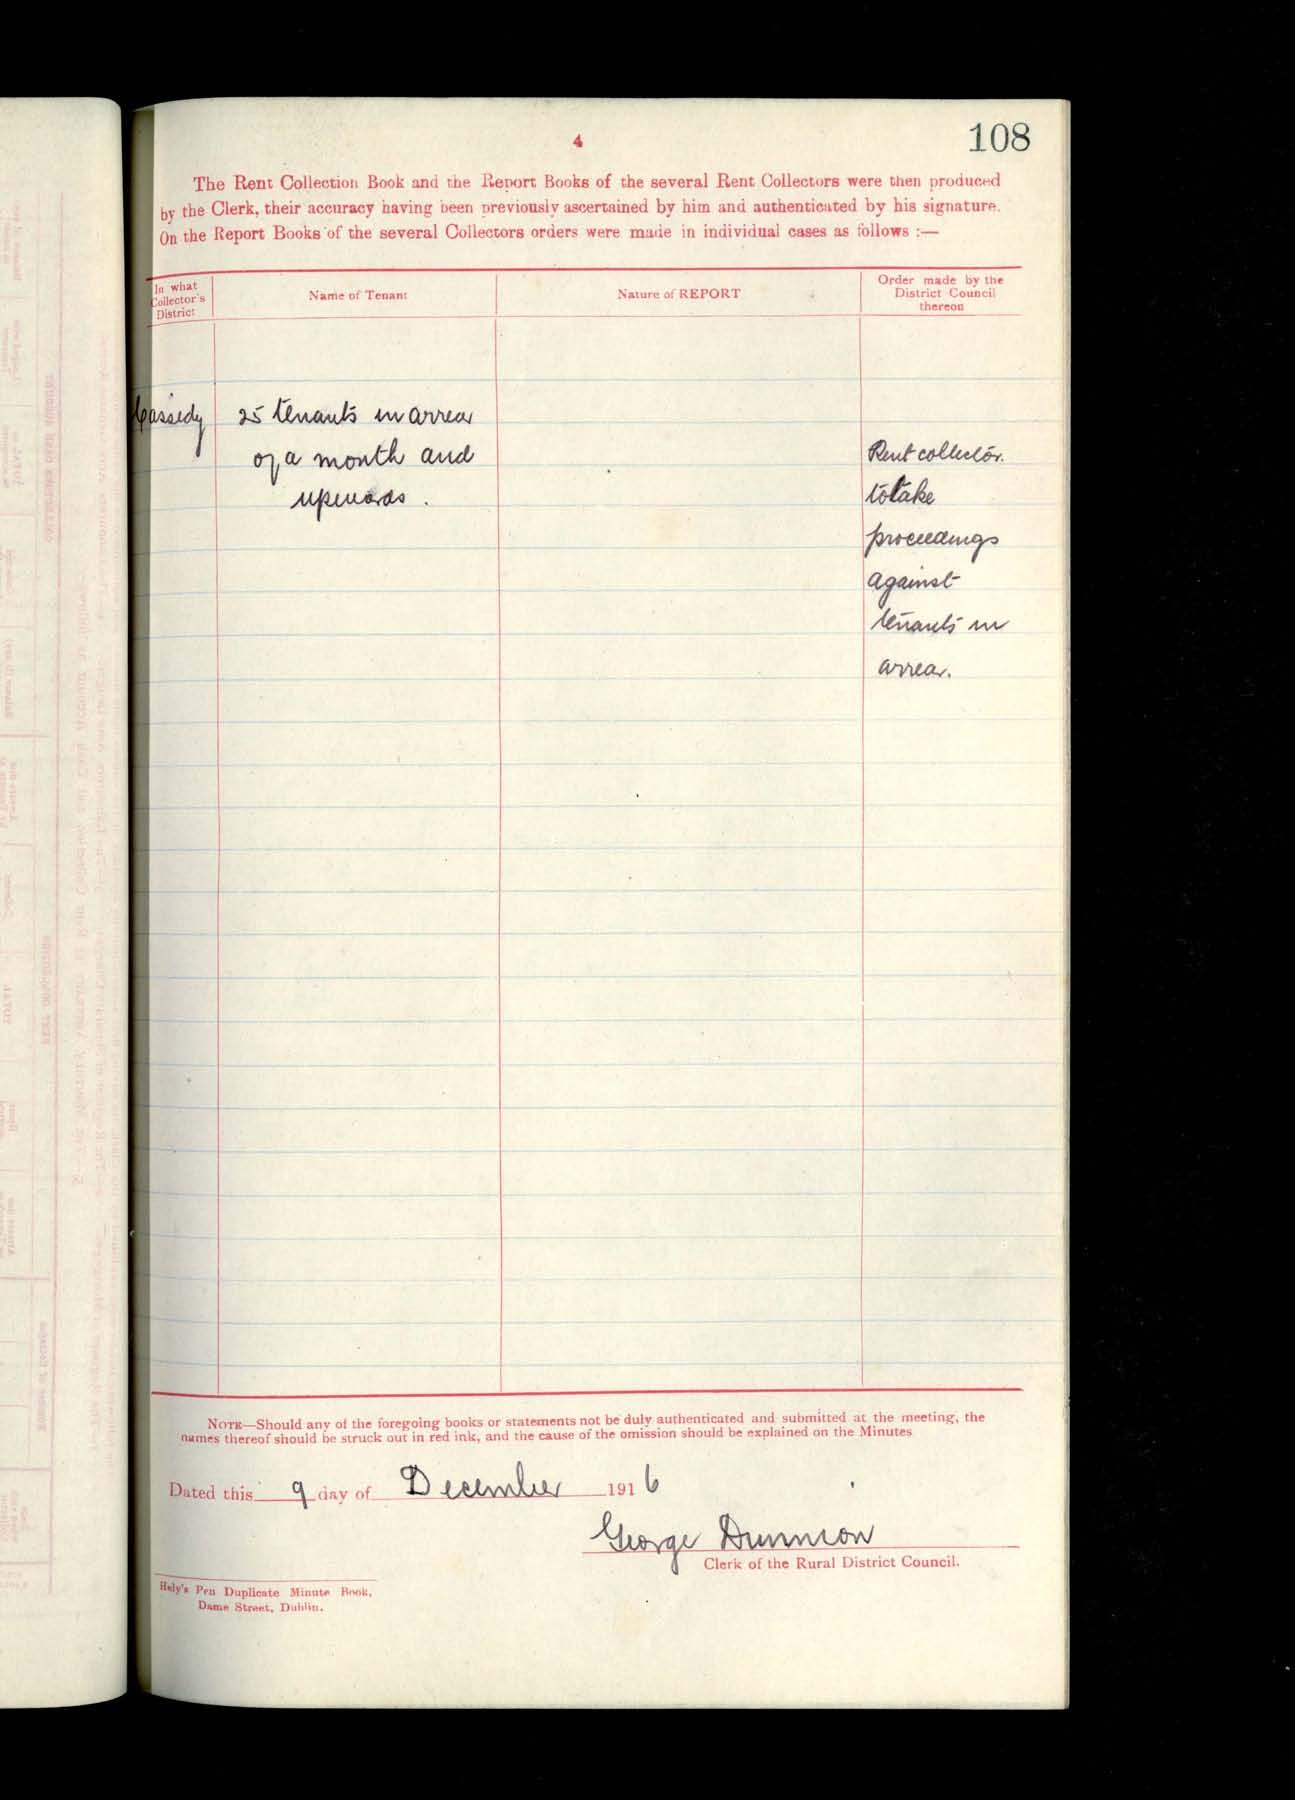 108
4
The Rent Collection Book and the Report Books of the several Rent Collectors were then produced
by the Clerk, their accuracy having been previously ascertained by him and authenticated by his signature.
On the Report Books of the several Collectors orders were made in individual cases as follows :—
In what
Collector's
District
Name of Tenant
Nature of REPORT
Order made by the
District Council
thereon
Cassedy
25 tenants in arrear
of a month and
upwards .
Rent collector.
to take
proceedings
against
tenants in
arrear.
NOTE—Should any of the foregoing books or statements not be duly authenticated and submitted at the meeting, the
names thereof should be struck out in red ink, and the cause of the omission should be explained on the Minutes
Dated this 9 day of December 1916
George Dunnion
Clerk of the Rural District Council.
Hely's Pen Duplicate Minute Book,
Dame Street, Dublin.